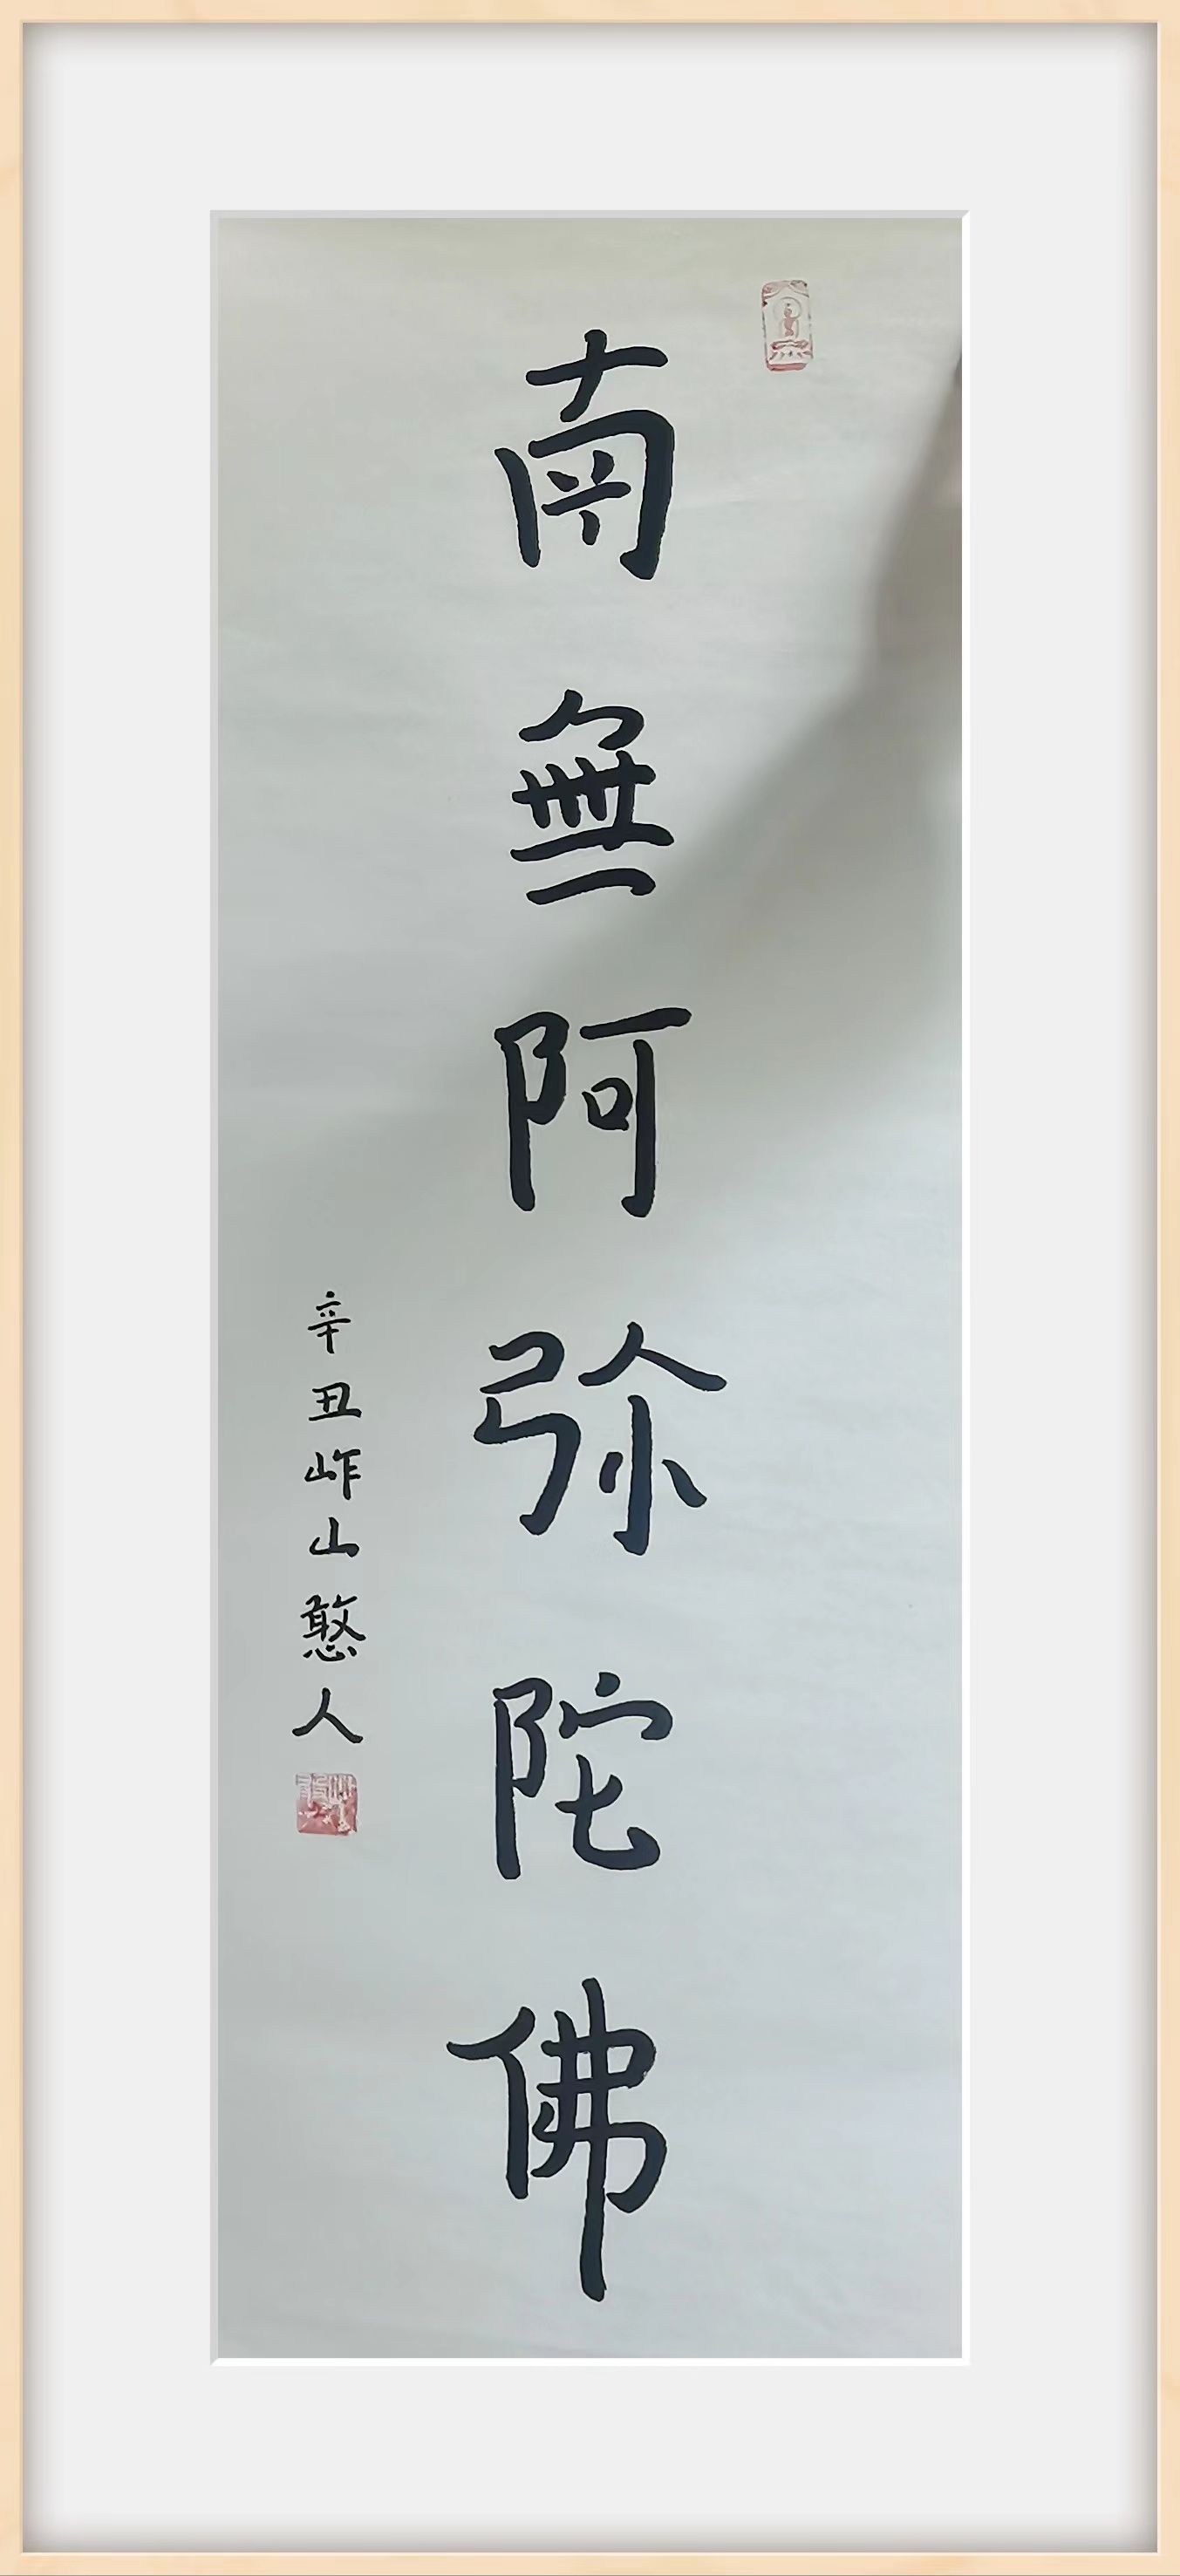 南無阿弥陀佛
辛丑岞山憨人